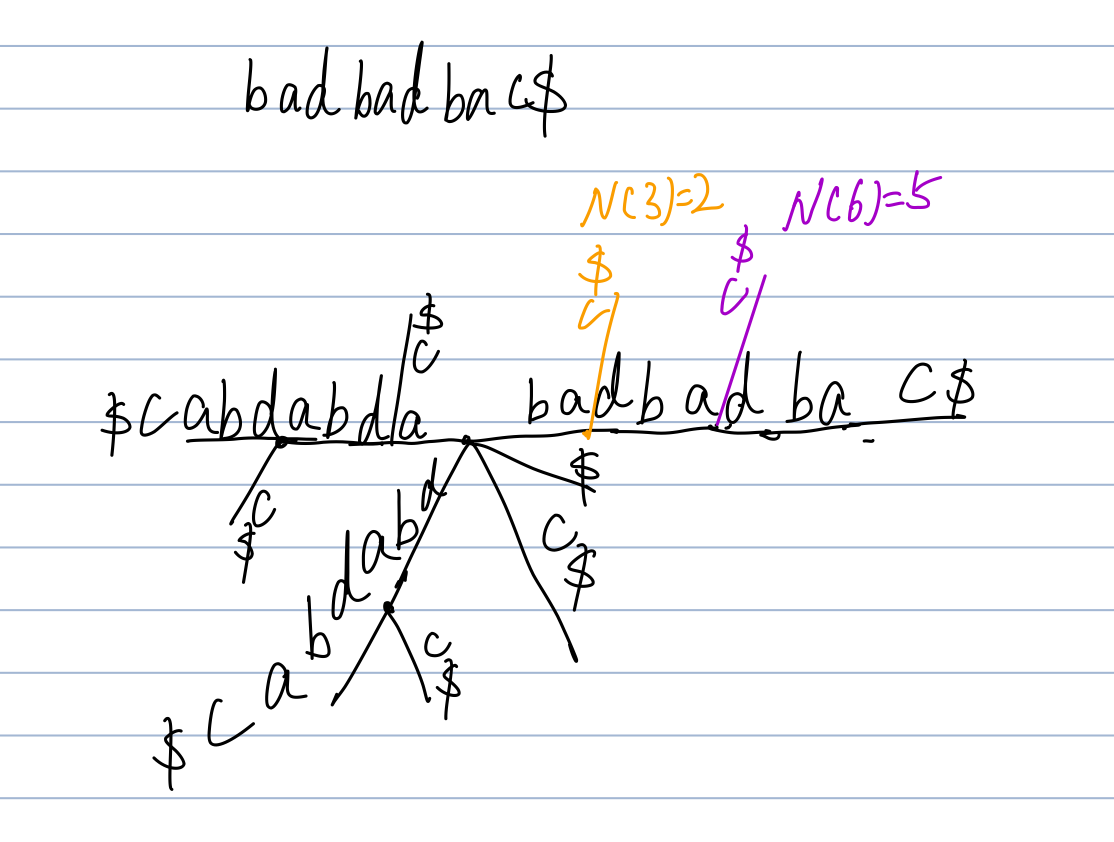 badbadbac$
N(3)=2
N(6)=5
$
c
$
c
$
c
$cabdabda
badbadbac$
c
$
d
b
a
d
b
a
c
$
c
$
$
c
$